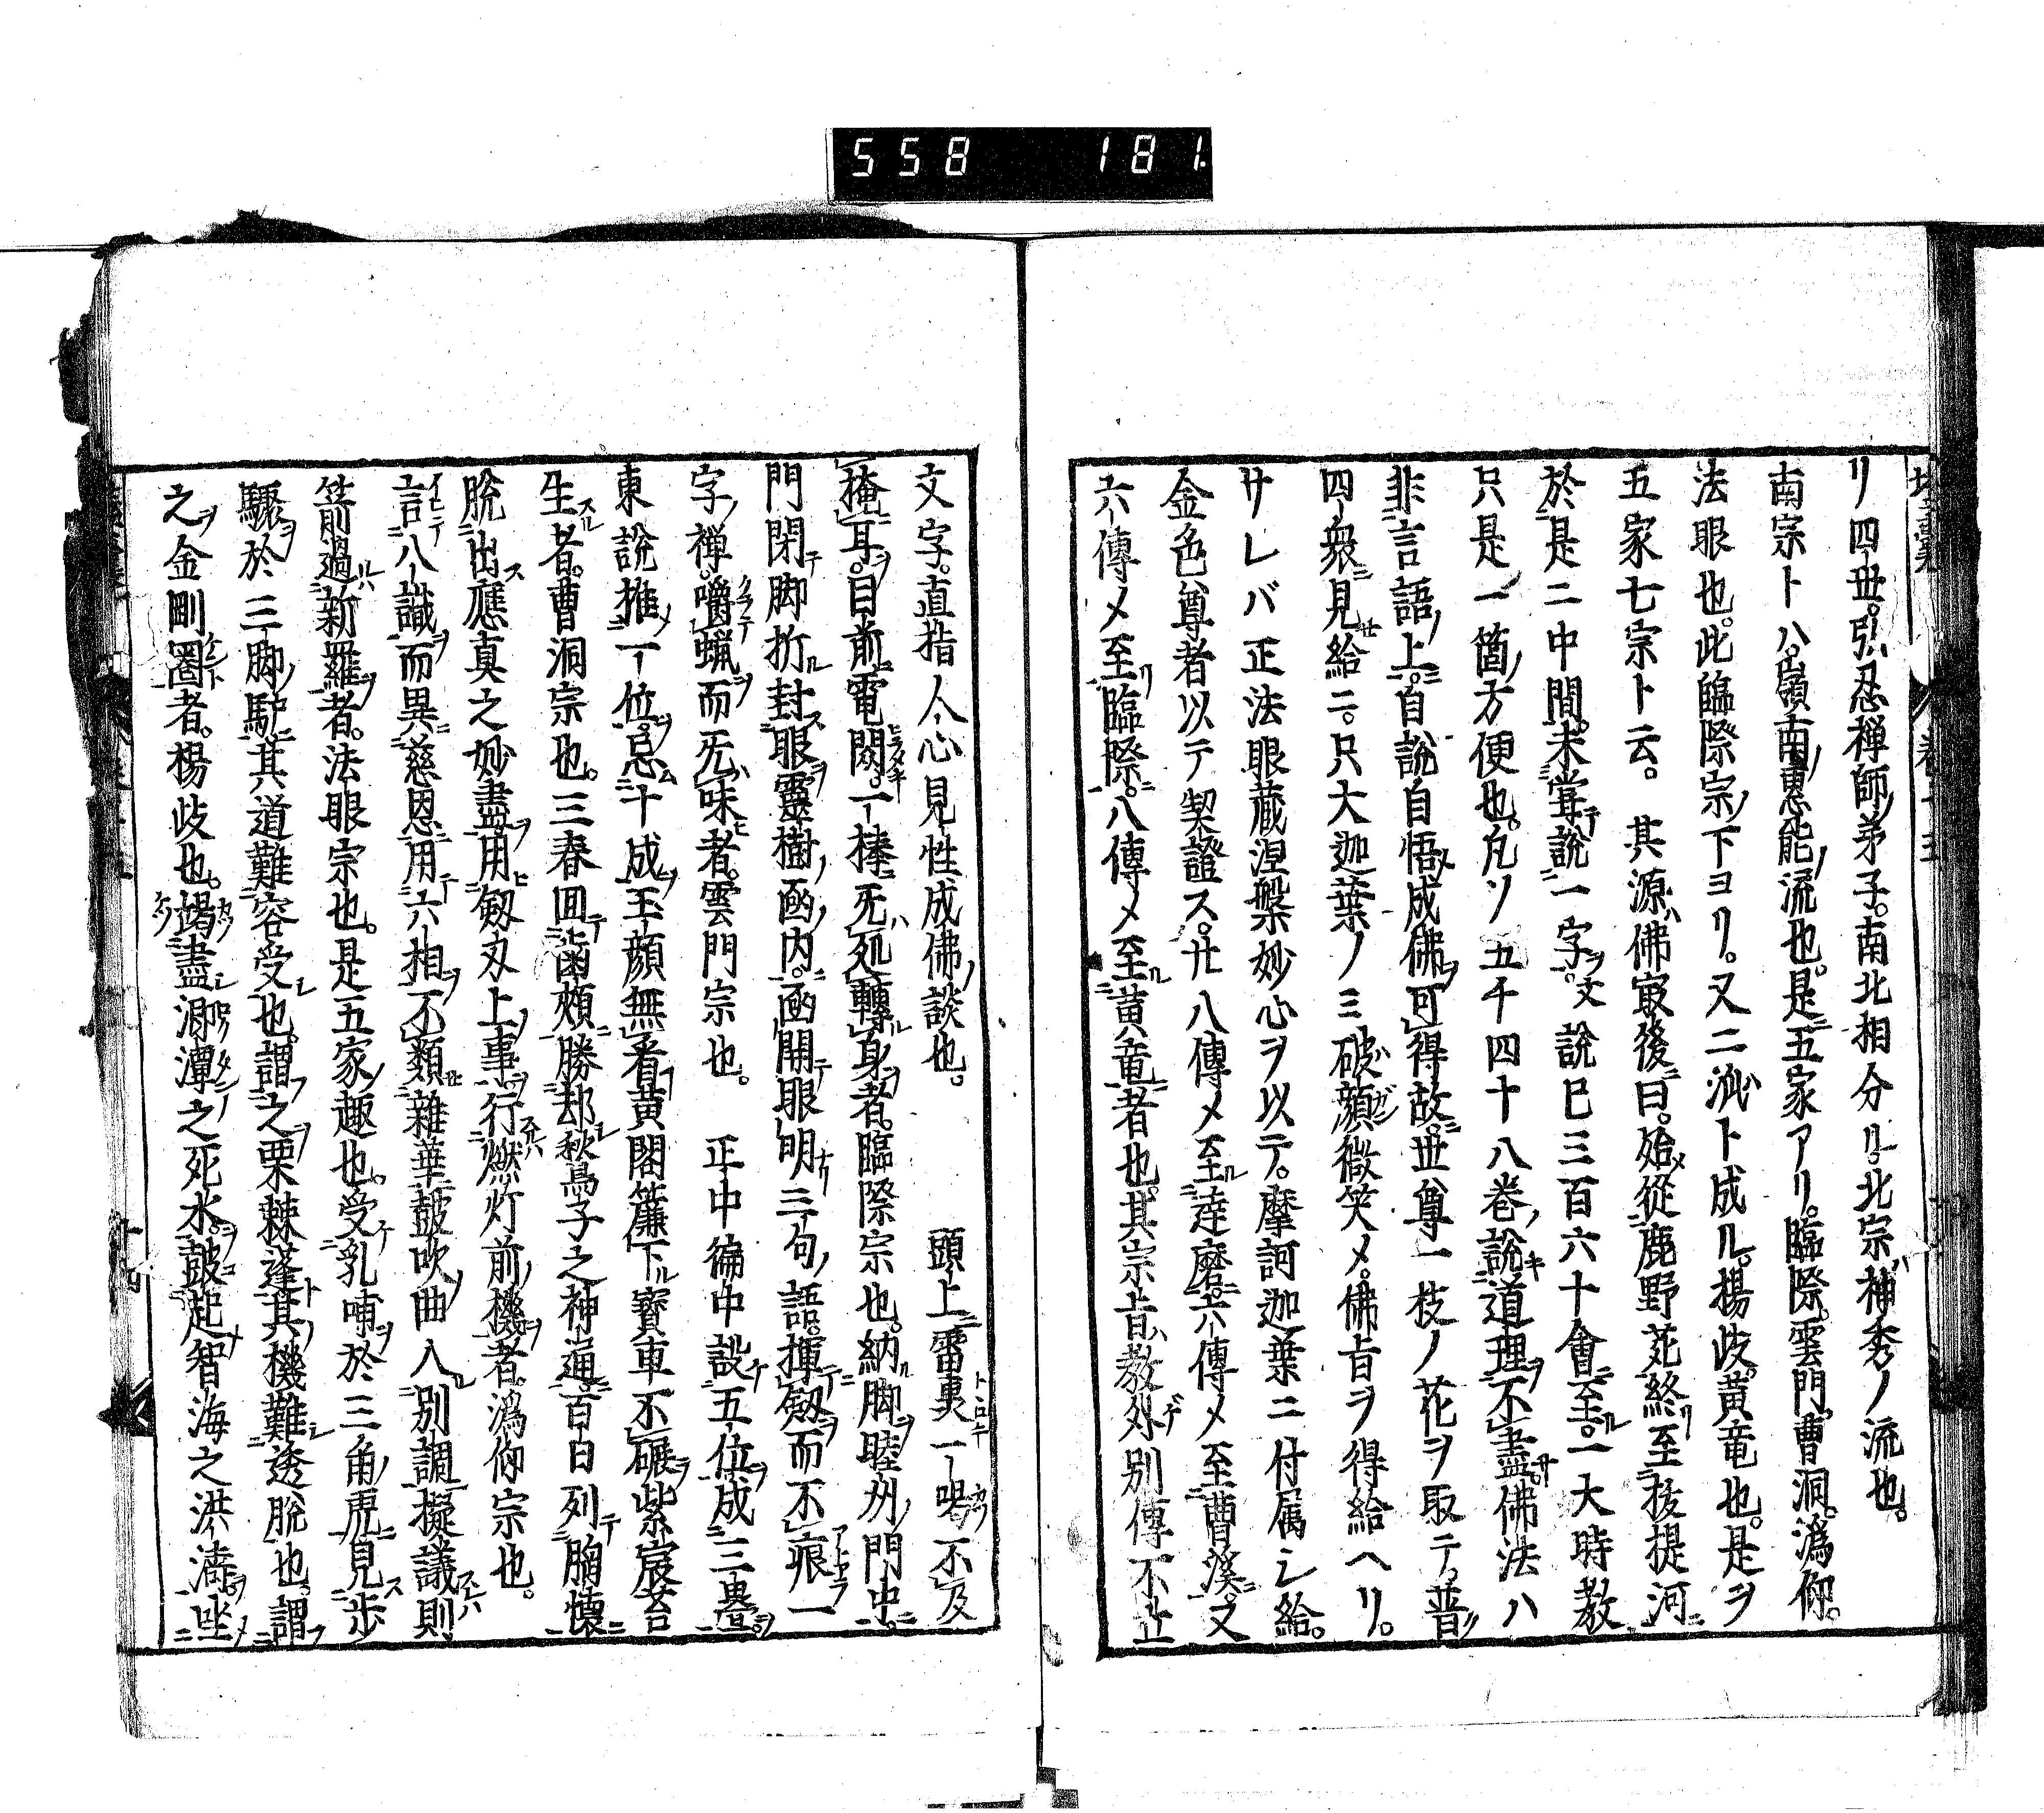 558 181.
リ四世。弘忍禅師ノ弟子。南北相分リ。北宗ハ神秀ノ流也。
南宗トハ。嶺南ノ惠能ノ流也。是ニ五家アリ。臨際。雲門。曹洞。潙仰。
法眼也。此臨際宗ノ下ヨリ。又二派ト成ル。楊岐。黄竜也。是ヲ
五家七宗ト云。其源ハ佛最後ニ曰。始メ從鹿野苑終リ至抜提河ニ
於是二中間。未甞テ說一字ヲ。文說已三百六十會ニ至ル。一大時教
只是一箇ノ方便也。凡ソ五千四十八巻ノ說キ道理ヲ不盡サ。佛法ハ
非言語ノ上ニ。自說自悟メ成佛ヲ可得故ニ。世尊一枝ノ花ヲ取テ。普ク
四衆ニ見セ給ニ。只大迦葉ノミ破顔微笑メ。佛旨ヲ得給ヘリ。
サレバ正法眼蔵涅槃妙心ヲ以テ。摩訶迦葉ニ付属シ給。
金色尊者以テ契證ス。廿八傳メ至ル達磨ニ。六傳メ至曹溪ニ。又
六傳メ至リ臨際ニ。八傳メ至ル黄竜ニ者也。其宗旨ハ教外ゲ別傳不止
文字。直指人心見性成佛ノ談也。頭上ニ雷裏一喝不及
掩耳ヲ。目前ニ電閃。一棒ニ旡ハ死轉ル身ヲ者。臨際宗也。納ル脚ヲ睦州ノ門中ニ。
門閉テ脚折ル封ス眼ヲ靈樹ノ函ノ内ニ。函開テ眼明ナリ三句ノ語。揮テ劔ヲ而不痕一
字ノ禅。嚼テ蝋ヲ而旡ハ味ヒ者。雲門宗也。正中徧中設ケ五位ヲ成三疊ヲ。
東說推メ一位ヲ。忌ム十成ヲ玉顔無看黄閣簾下ル寳車不碾ヲ紫宸苔
生スル者。曹洞宗也。三春回テ齒頰ニ勝却レ秋鳥子之神通ニ。百日列テ胸懐ニ
脫出ス應真之妙盡ヲ用ヒ劔刄上ノ事ヲ行燃灯前ノ機ヲ者。潙仰宗也。
言テ八識ヲ而異慈恩ニ用テ六相ヲ不類セ雜華ニ皷吹ノ曲入ル別調擬議スレハ則
箭過ル新羅ヲ者。法眼宗也。是五家ノ趣也。受ケ乳哺ヲ於三角ノ虎ニ見ス歩
驟ヲ於三脚ノ馿ニ其道難容受シ也。謂フ之ヲ栗棘蓬ト其ノ機難シ透脫也。謂フ
之ヲ金剛圏ト者。楊岐也。竭盡シ泐潭之死水ヲ。皷起メ智海之洪濤ヲ。坐メ